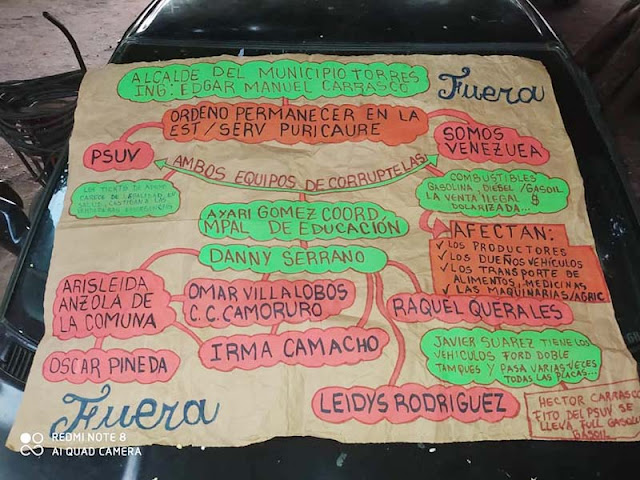 ALCALDE DEL MUNICIPIO TORRES
ING: EDGAR MANUEL CARRASCO
Fuera
ORDENO PERMANECER EN LA
EST/SERV PURICAURE
PSUV
SOMOS
VENEZUEA
AMBOS EQUIPOS DE CORRUPTELAS
CARECE DE
SALUD
COMBUSTIBLES
GASOLINA, DIESEL/GASOIL
LA VENTA ILEGAL &
DOLARIZADA...
AYARI GOMEZ COORD,
MPAL DE EDUCACIÓN
AFECTAN:
✓ LOS PRODUCTORES
✓ LOS DUEÑOS VEHÍCULOS
✓ LOS TRANSPORTE DE
ALIMENTOS, MEDICINAS
✓ LAS MAQUINARIAS/AGRIC
DANNY SERRANO
ARISLEIDA
ANZOLA DE
LA COMUNA
OMAR VILLALOBOS
C.C. CAMORURO
RAQUEL QUERALES
OSCAR PINEDA
IRMA CAMACHO
JAVIER SUAREZ TIENE LOS
VEHICULOS FORD DOBLE
TANQUES Y PASA VARIAS VECES
TODAS LAS PLACAS...
LEIDYS RODRIGUEZ
HECTOR CARRASCO
TITO DEL PSUV SE
LLEVA FULL GASOLI
GASOIL
Fuera
REDMI NOTE 8
AI QUAD CAMERA